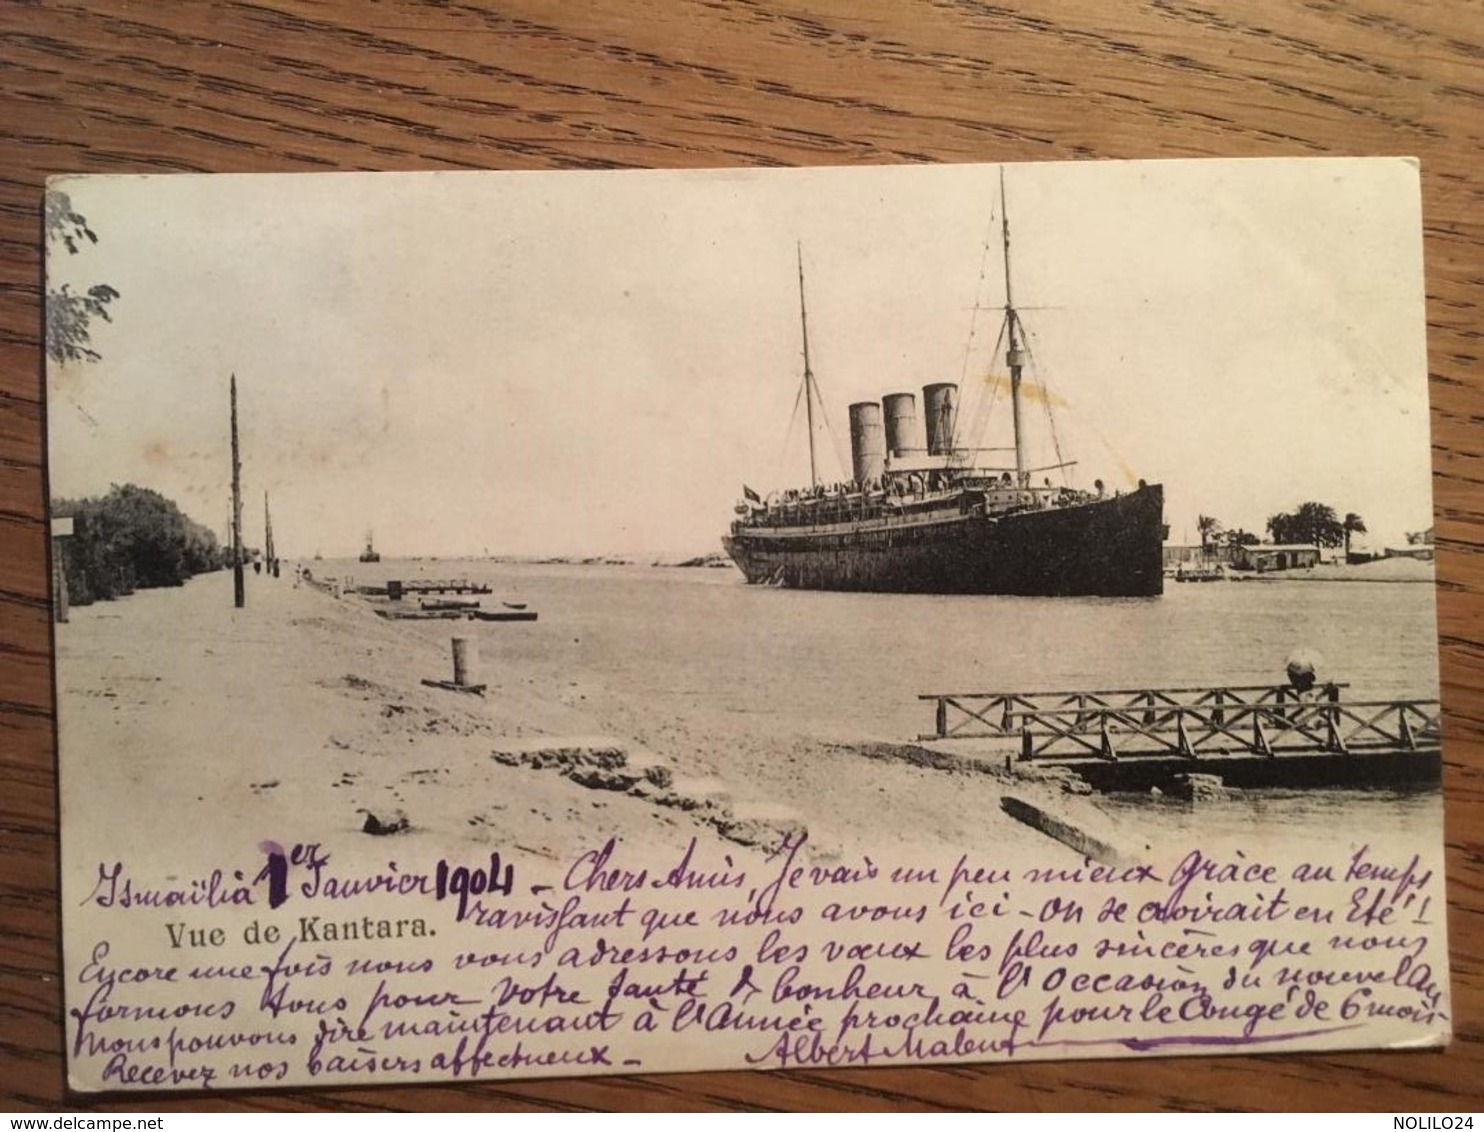 Ismaïlia 1er Janvier 1904 - Chers Amis, Je vais un peu mieux grâce au temps
ravissant que nous avons ici - On se croirait en Eté!
Vue de Kantara.
Encore une fois nous vous adressons les vœux les plus sincères que nous
formons tous pour votre santé & bonheur à l'occasion du nouvel An
Nous pouvons dire maintenant à l'Année prochaine pour le Congé de 6 mois -
Recevez nos baisers affectueux -
Albert
NOLILO24